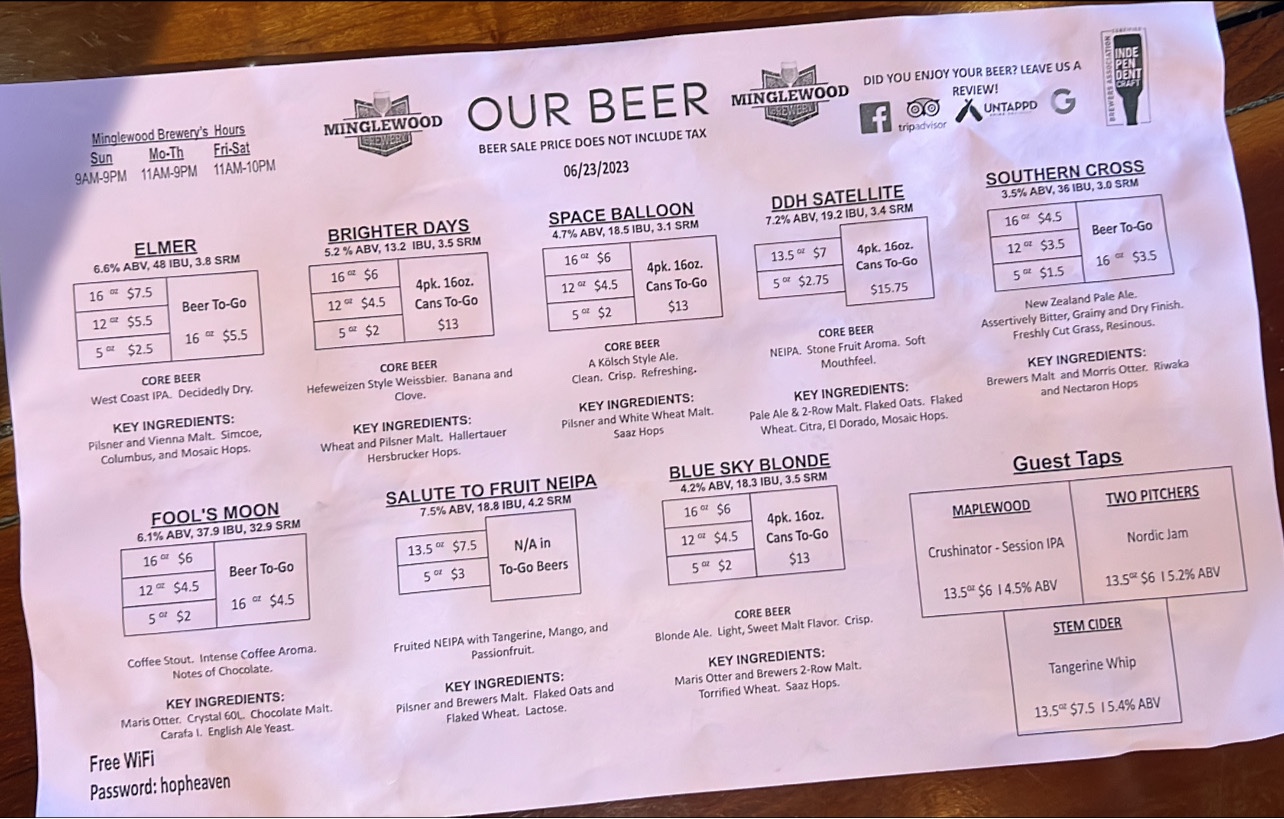 Minglewood Brewery's Hours
Sun Mo-Th Fri-Sat
9AM-9PM 11AM-9PM 11AM-10PM
MINGLEWOOD
BREWERY
OUR BEER
BEER SALE PRICE DOES NOT INCLUDE TAX
06/23/2023
MINGLEWOOD
BREWERY
DID YOU ENJOY YOUR BEER? LEAVE US A
REVIEW!
tripadvisor
UNTAPPD
G
BREWERS ASSOCIATION
CERTIFIED
INDE
PEN
DENT
CRAFT
ELMER
6.6% ABV, 48 IBU, 3.8 SRM
16 oz $7.5
12 oz $5.5
5 oz $2.5
Beer To-Go
16 oz $5.5
CORE BEER
West Coast IPA. Decidedly Dry.
KEY INGREDIENTS:
Pilsner and Vienna Malt. Simcoe,
Columbus, and Mosaic Hops.
BRIGHTER DAYS
5.2 % ABV, 13.2 IBU, 3.5 SRM
16 oz $6
12 oz $4.5
5 oz $2
4pk. 16oz.
Cans To-Go
$13
CORE BEER
Hefeweizen Style Weissbier. Banana and
Clove.
KEY INGREDIENTS:
Wheat and Pilsner Malt. Hallertauer
Hersbrucker Hops.
SPACE BALLOON
4.7% ABV, 18.5 IBU, 3.1 SRM
16 oz $6
12 oz $4.5
5 oz $2
4pk. 16oz.
Cans To-Go
$13
CORE BEER
A Kölsch Style Ale.
Clean. Crisp. Refreshing.
KEY INGREDIENTS:
Pilsner and White Wheat Malt.
Saaz Hops
DDH SATELLITE
7.2% ABV, 19.2 IBU, 3.4 SRM
13.5 oz $7
5 oz $2.75
4pk. 16oz.
Cans To-Go
$15.75
CORE BEER
NEIPA. Stone Fruit Aroma. Soft
Mouthfeel.
KEY INGREDIENTS:
Pale Ale & 2-Row Malt. Flaked Oats. Flaked
Wheat. Citra, El Dorado, Mosaic Hops.
SOUTHERN CROSS
3.5% ABV, 36 IBU, 3.0 SRM
16 oz $4.5
12 oz $3.5
5 oz $1.5
Beer To-Go
16 oz $3.5
New Zealand Pale Ale.
Assertively Bitter, Grainy and Dry Finish.
Freshly Cut Grass, Resinous.
KEY INGREDIENTS:
Brewers Malt and Morris Otter. Riwaka
and Nectaron Hops
FOOL'S MOON
6.1% ABV, 37.9 IBU, 32.9 SRM
16 oz $6
12 oz $4.5
5 oz $2
Beer To-Go
16 oz $4.5
Coffee Stout. Intense Coffee Aroma.
Notes of Chocolate.
KEY INGREDIENTS:
Maris Otter. Crystal 60L. Chocolate Malt.
Carafa I. English Ale Yeast.
SALUTE TO FRUIT NEIPA
7.5% ABV, 18.8 IBU, 4.2 SRM
13.5 oz $7.5
5 oz $3
N/A in
To-Go Beers
Fruited NEIPA with Tangerine, Mango, and
Passionfruit.
KEY INGREDIENTS:
Pilsner and Brewers Malt. Flaked Oats and
Flaked Wheat. Lactose.
BLUE SKY BLONDE
4.2% ABV, 18.3 IBU, 3.5 SRM
16 oz $6
12 oz $4.5
5 oz $2
4pk. 16oz.
Cans To-Go
$13
CORE BEER
Blonde Ale. Light, Sweet Malt Flavor. Crisp.
KEY INGREDIENTS:
Maris Otter and Brewers 2-Row Malt.
Torrified Wheat. Saaz Hops.
Guest Taps
MAPLEWOOD
Crushinator - Session IPA
13.5oz $6 I 4.5% ABV
TWO PITCHERS
Nordic Jam
13.5oz $6 I 5.2% ABV
STEM CIDER
Tangerine Whip
13.5oz $7.5 I 5.4% ABV
Free WiFi
Password: hopheaven